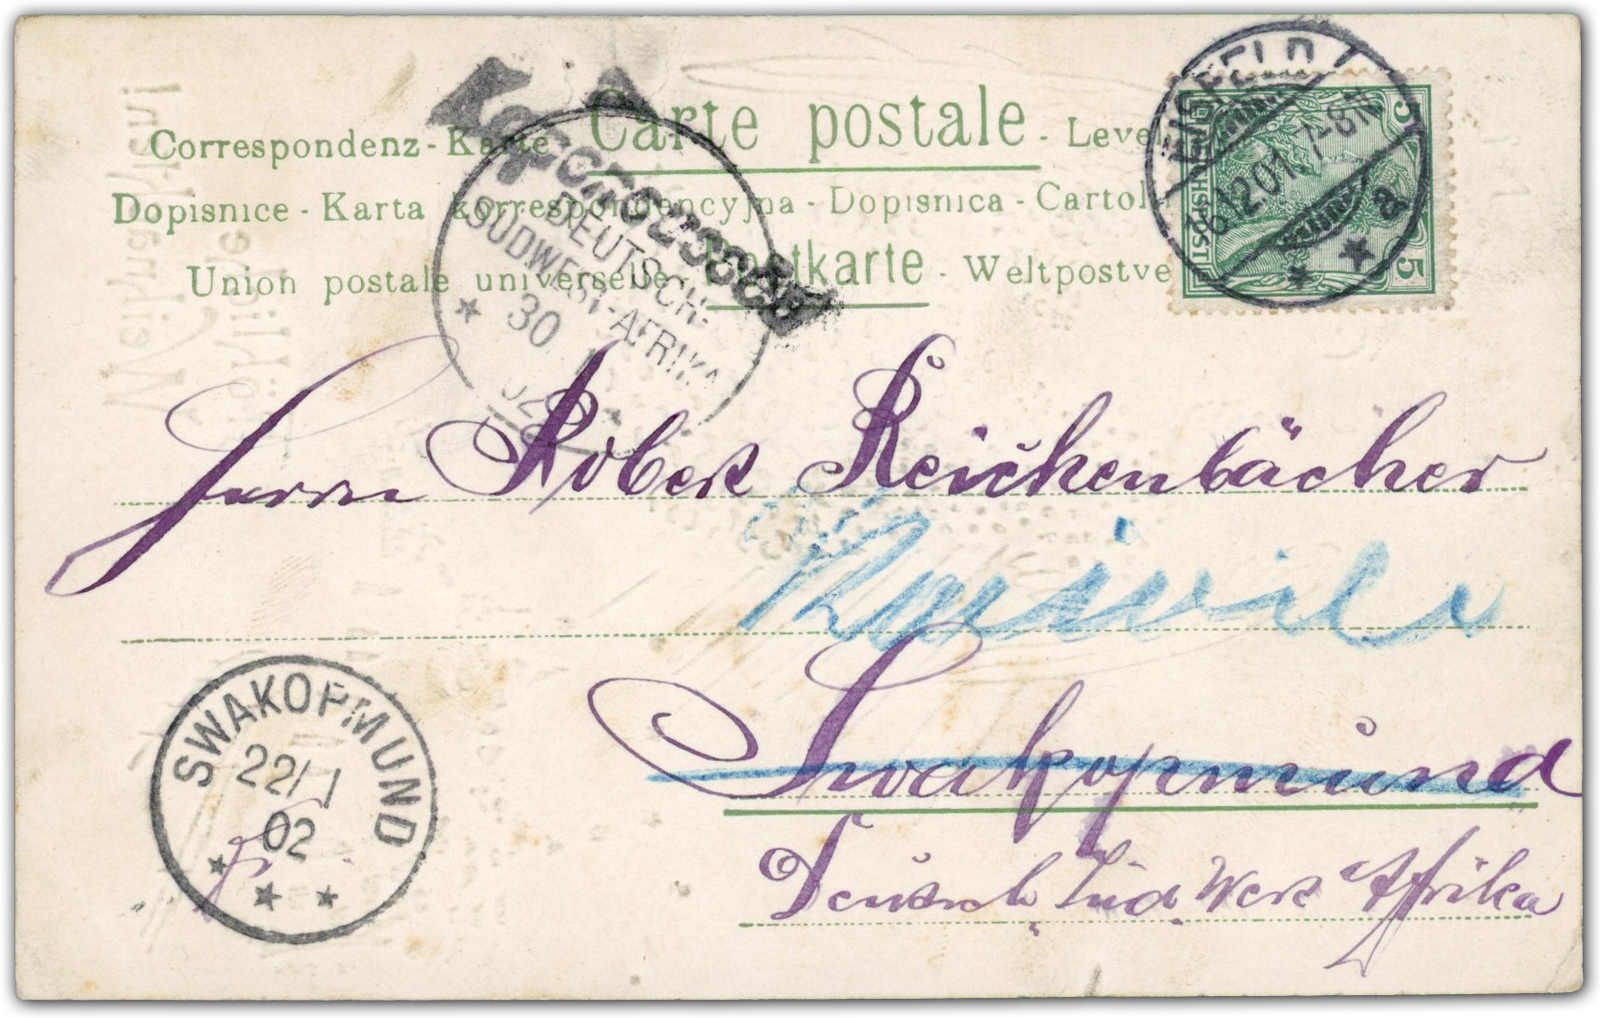 Carte postale
Correspondenz-Karte - Leve
Dopisnice - Karta korrespondencyjna - Dopisnica - Cartol
Union postale universelle Postkarte - Weltpostve
REICHSPOST 5 5
6.12.01. 7-8N.
a
DEUTSCH-
SÜDWEST-AFRIKA
30
02
Herrn Robert Reichenbächer
Swakopmund
Deutsch Süd West Afrika
SWAKOPMUND
22/1
02